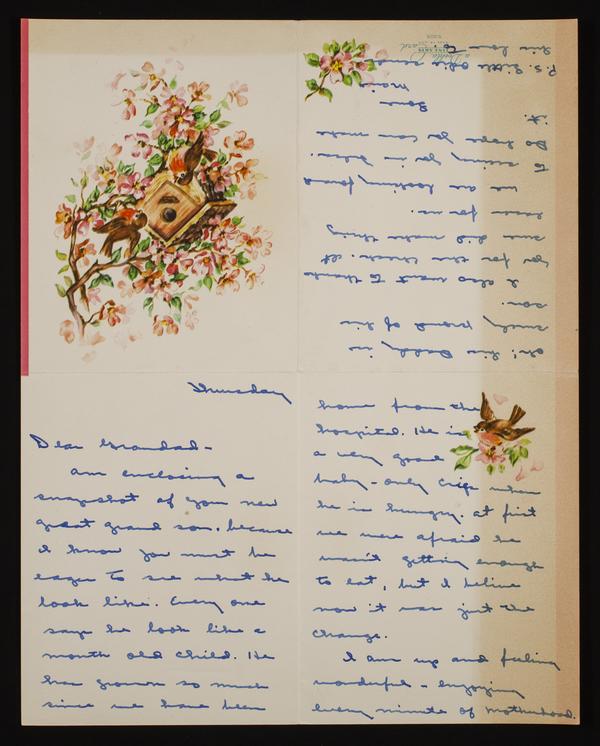 Thursday
Dear Grandad-
am enclosing a
snapshot of your new
great grand son. because
I know you must be
eager to see what he
look like. Every one
says he look like a
month old child. He
has grown so much
since we have been
home from the
hospital. He is
a very good
baby - only crys when
he is hungry. at first
we were afraid he
wasn't getting enough
to eat, but I believe
now it was just the
change.
I am up and feeling
wonderful - enjoying
every minute of motherhood.
oh! his Daddy is
surely proud of his
son.
I also want to thank
you for the check. It
sure did make things
for us.
we are looking forward
To seeing you in
Do hope you can make
it.
Love
P.S. Little Otis sends
his love To